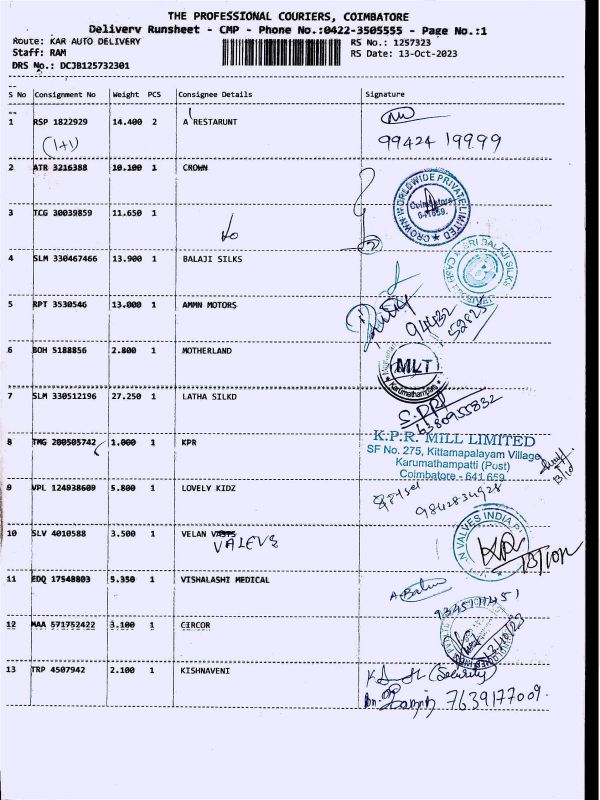 THE PROFESSIONAL COURIERS, COIMBATORE
Delivery Runsheet - CMP - Phone No.:0422-3505555 - Page No.:1
Route: KAR AUTO DELIVERY RS No.: 1257323
Staff: RAM RS Date: 13-Oct-2023
DRS No.: DCJB125732301
S No Consignment No Weight PCS Consignee Details Signature
1 RSP 1822929 14.400 2 A RESTARUNT
(1+1) 99424 19999
2 ATR 3216388 10.100 1 CROWN
CROWN WORLDWIDE PRIVATE LIMITED
Coimbatore
641659.
3 TCG 30039859 11.650 1
4 SLM 330467466 13.900 1 BALAJI SILKS
SRI BALAJI SILKS
5 RPT 3530546 13.000 1 AMMN MOTORS
94432
52825
6 BOH 5188856 2.800 1 MOTHERLAND
MLT
Karumathampatti
7 SLM 330512196 27.250 1 LATHA SILKD
6380955832
8 TMG 200505742 1.000 1 KPR
K.P.R. MILL LIMITED
SF No. 275, Kittamapalayam Village
Karumathampatti (Post)
Coimbatore - 641 659
13/10
9 VPL 124938609 5.800 1 LOVELY KIDZ
9842834928
10 SLV 4010588 3.500 1 VELAN
VALEVE
N VALVES INDIA P
11 EDQ 17548803 5.350 1 VISHALASHI MEDICAL
9345111451
12 MAA 571752422 3.100 1 CIRCOR
13/10/23
13 TRP 4507942 2.100 1 KISHNAVENI
(Security)
7639177009.